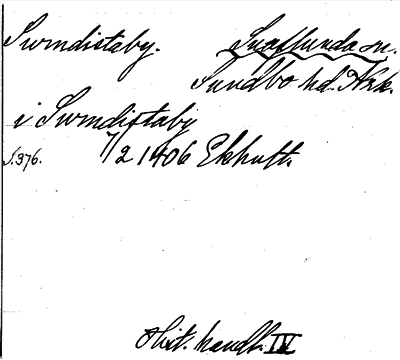 Svmdistaby. Snaflunda sn.
Sundbo hd. Nrk.
i Svmdistaby
S. 376. 7/2 1406 Ekhult.
Hist. handl. IV